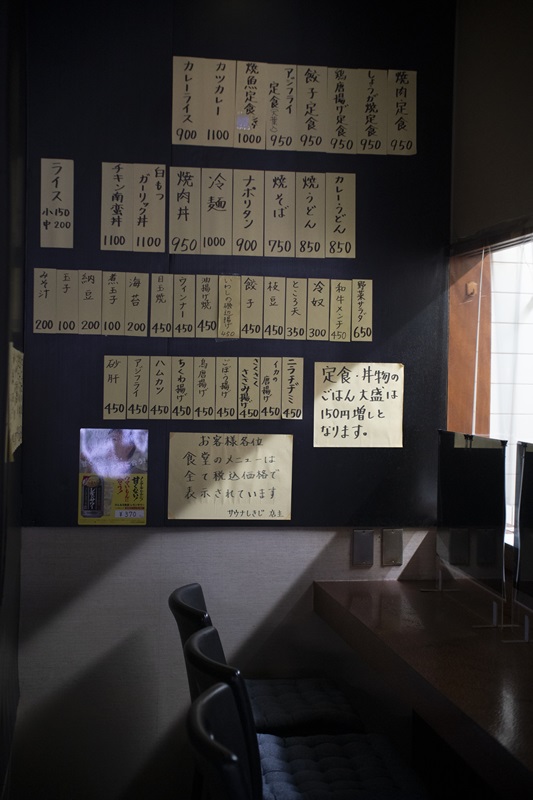 焼肉定食 950
しょうが焼定食 950
鶏唐揚げ定食 950
餃子定食 950
アジフライ定食 950
焼魚定食 1000
カツカレー 1100
カレーライス 900
カレーうどん 850
焼うどん 850
焼そば 750
ナポリタン 900
冷麺 1000
焼肉丼 950
白もつガーリック丼 1100
チキン南蛮丼 1100
ライス 小150 中200
野菜サラダ 650
和牛メンチ 450
冷奴 300
ところ天 350
枝豆 450
餃子 450
いわしの磯辺揚げ 450
油揚げ焼 450
ウィンナー 450
目玉焼 450
海苔 200
煮玉子 100
納豆 200
玉子 100
みそ汁 200
ニラチヂミ 450
イカの唐揚げ 450
さくさくささみ揚げ 450
ごぼう揚げ 450
鳥唐揚げ 450
ちくわ揚げ 450
ハムカツ 450
アジフライ 450
砂肝 450
定食・丼物の
ごはん大盛は
150円増しと
なります。
お客様各位
食堂のメニューは
全て税込価格で
表示されています
サウナしきじ 店主
¥370